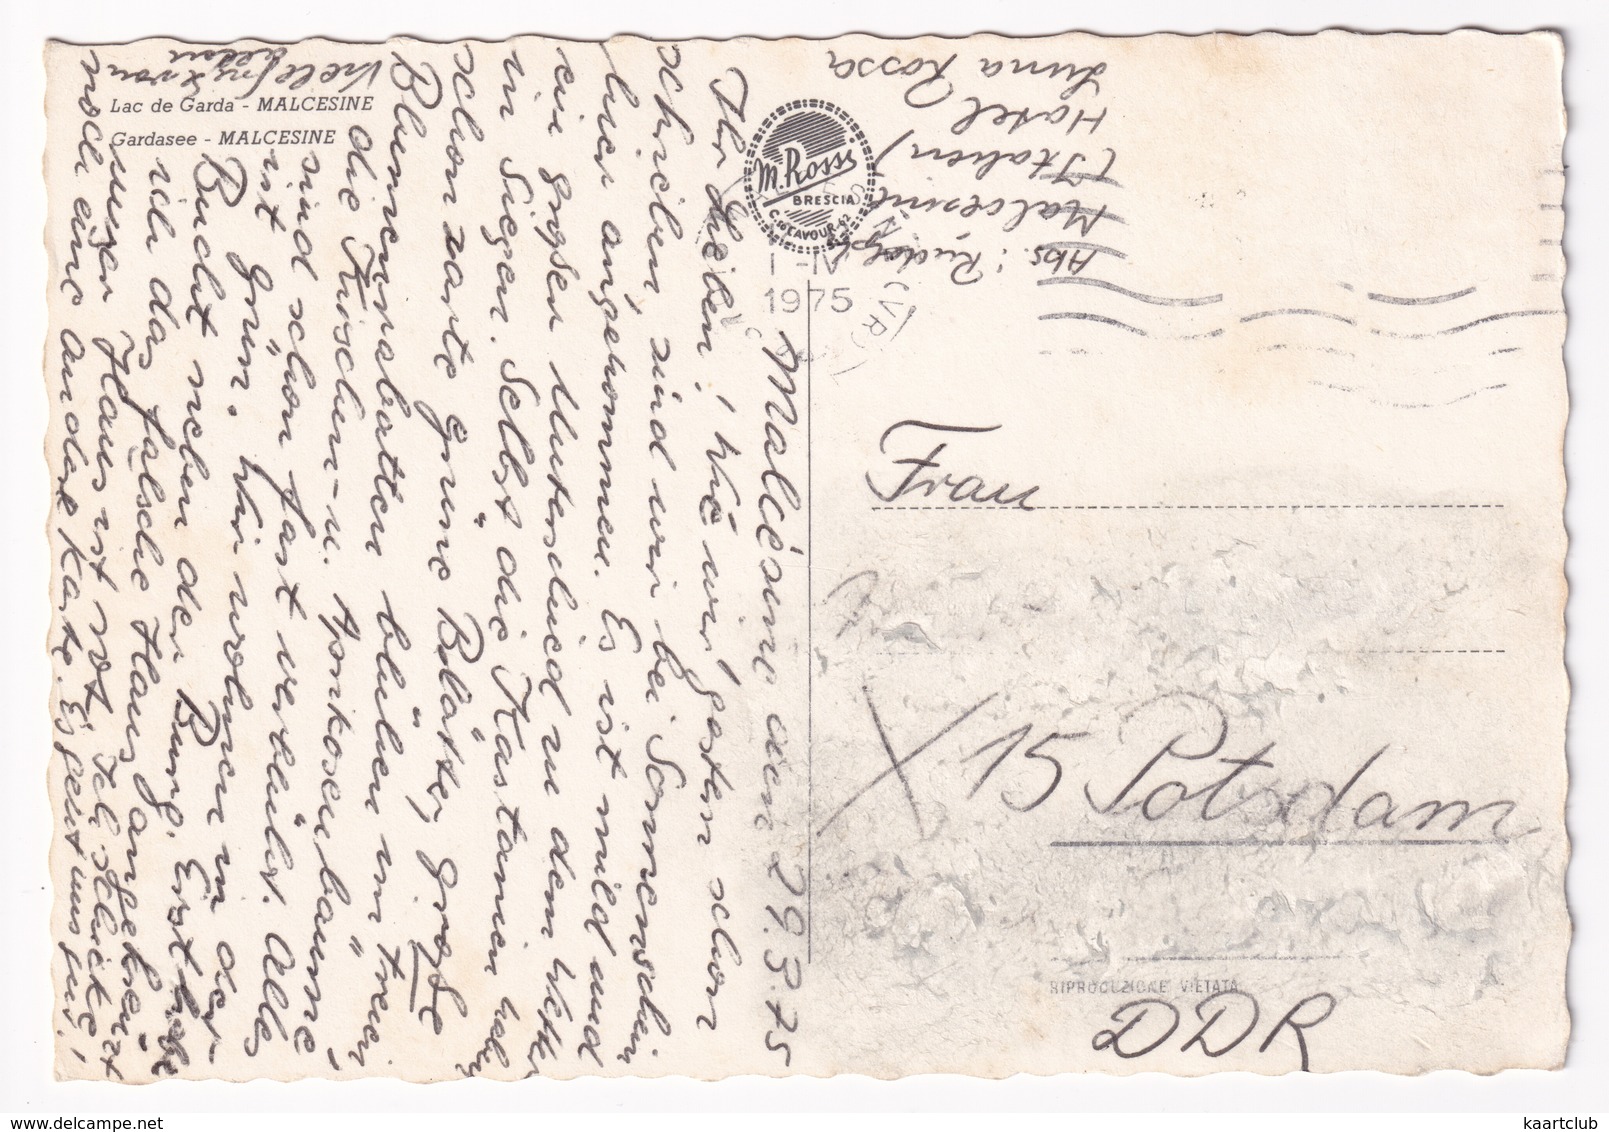 Lac de Garda - MALCESINE
Gardasee - MALCESINE
M. Rossi
BRESCIA
C.so CAVOUR-62
1-IV
1975
Abs.: Rudolph
Malcesine
(Italien)
Hotel Rossa
Luna
Malcésine den 29.3.75
Ihr Lieben! Wie wir gestern schon
schrieben, sind wir bei Sonnenschein
hier angekommen. Es ist mild und
ein großer Unterschied zu dem Wetter
in Siegen. Selbst die Kastanien haben
schon zarte grüne Blätter, große
Blumenrabatten blühen im Freien
die Kirschen- u. Aprikosenbäume
sind schon fast verblüht. Alles
ist grün. Wir wohnen in der
Bucht neben der Burg. Erst habe
ich das falsche Haus angekreuzt
unser Haus ist rot. Ich schicke
noch eine andere Karte. Es geht uns gut!
Viele von
Frau
15 Potsdam
DDR
RIPRODUZIONE VIETATA
www.delcampe.net
kaartclub